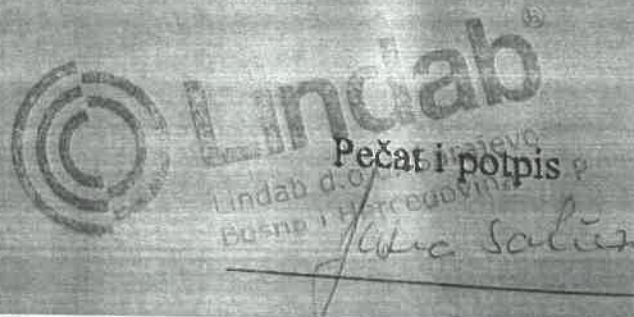 Lindab®
Pečat i potpis
Lindab d.o.o. Sarajevo
Bosna i Hercegovina